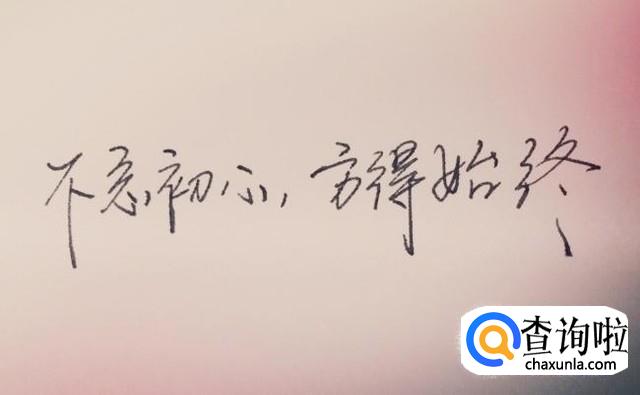 不忘初心,方得始终
查询啦
chaxunla.com